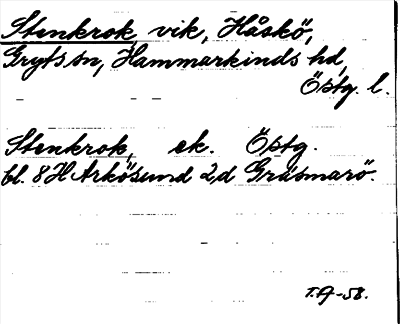 Stenkrok, vik, Håskö,
Gryts sn, Hammarkinds hd,
Östg. l.
Stenkrok, ek. Östg.
bl. 8H Arkösund 2d Gräsmarö.
T.A-58.